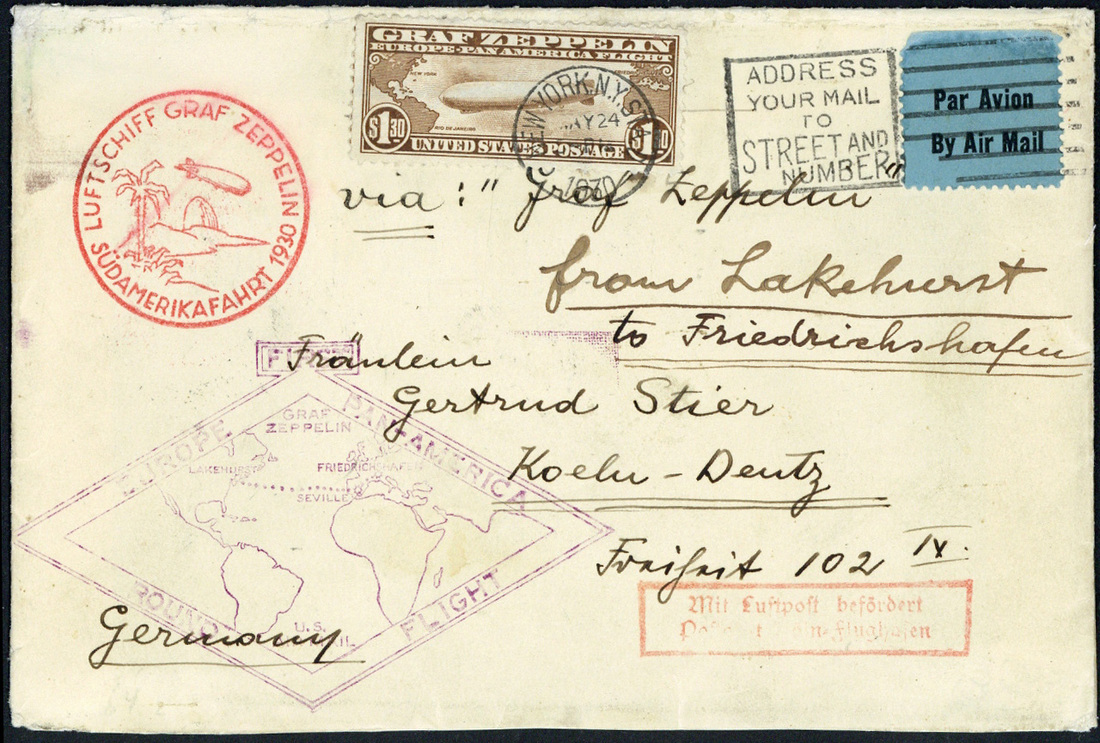 GRAF ZEPPELIN
EUROPE-PAN AMERICA FLIGHT
NEW YORK
RIO DE JANEIRO
$1.30 $1.30
UNITED STATES POSTAGE
NEW YORK, N.Y.
MAY 24
1930
ADDRESS
YOUR MAIL
TO
STREET AND
NUMBER
Par Avion
By Air Mail
LUFTSCHIFF GRAF ZEPPELIN
SÜDAMERIKAFAHRT 1930
via: "Graf Zeppelin"
from Lakehurst
to Friedrichshafen
Fräulein
Gertrud Stier
Koeln-Deutz
Freiheit 102 IV.
Germany
EUROPE PAN-AMERICA
GRAF
ZEPPELIN
LAKEHURST FRIEDRICHSHAFEN
SEVILLE
ROUND FLIGHT
U.S.
Mit Luftpost befördert
Flughafen